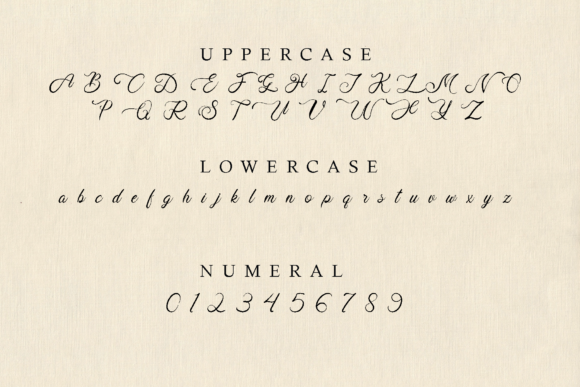 UPPERCASE
A B C D E F G H I J K L M N O
P Q R S T U V W X Y Z
LOWERCASE
a b c d e f g h i j k l m n o p q r s t u v w x y z
NUMERAL
0 1 2 3 4 5 6 7 8 9